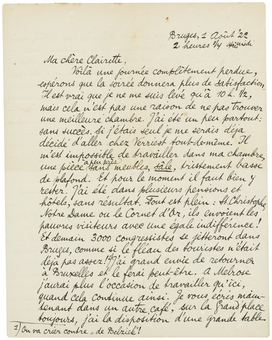 Bruges, 1 Août '22
2 heures 1/4
Ma chère Clairette,
Voilà une journée complètement perdue,
espérons que la soirée donnera plus de satisfaction.
Il est vrai que je ne me suis levé qu'à 10 h. 1/2,
mais cela n'est pas une raison de ne pas trouver
une meilleure chambre. J'ai été un peu partout
sans succès, si j'étais seul je me serais déjà
décidé d'aller chez Verriest tout-de-même. Il
m'est impossible de travailler dans ma chambre,
une pièce à peu près sans meubles, sale, tristement basse
de plafond. Et pour le moment il faut bien y
rester! J'ai été dans plusieurs pensions et
hôtels, sans résultat. Tout est plein: St Christophe,
Notre Dame ou le Cornet d'Or, ils envoient les
pauvres visiteurs avec une égale indifférence.
Et demain 3000 Congressistes se jetteront dans
Bruges, comme si le fléau des touristes n'était
déjà pas assez! J'ai grand envie de retourner
à Bruxelles et le ferai peut-être. A Melrose
j'aurai plus l'occasion de travailler qu'ici,
quand cela continue ainsi. Je vous écris main-
tenant dans un autre café, sur la Grand'place
toujours, j'ai la disposition d'une grande table.
On va crier contre